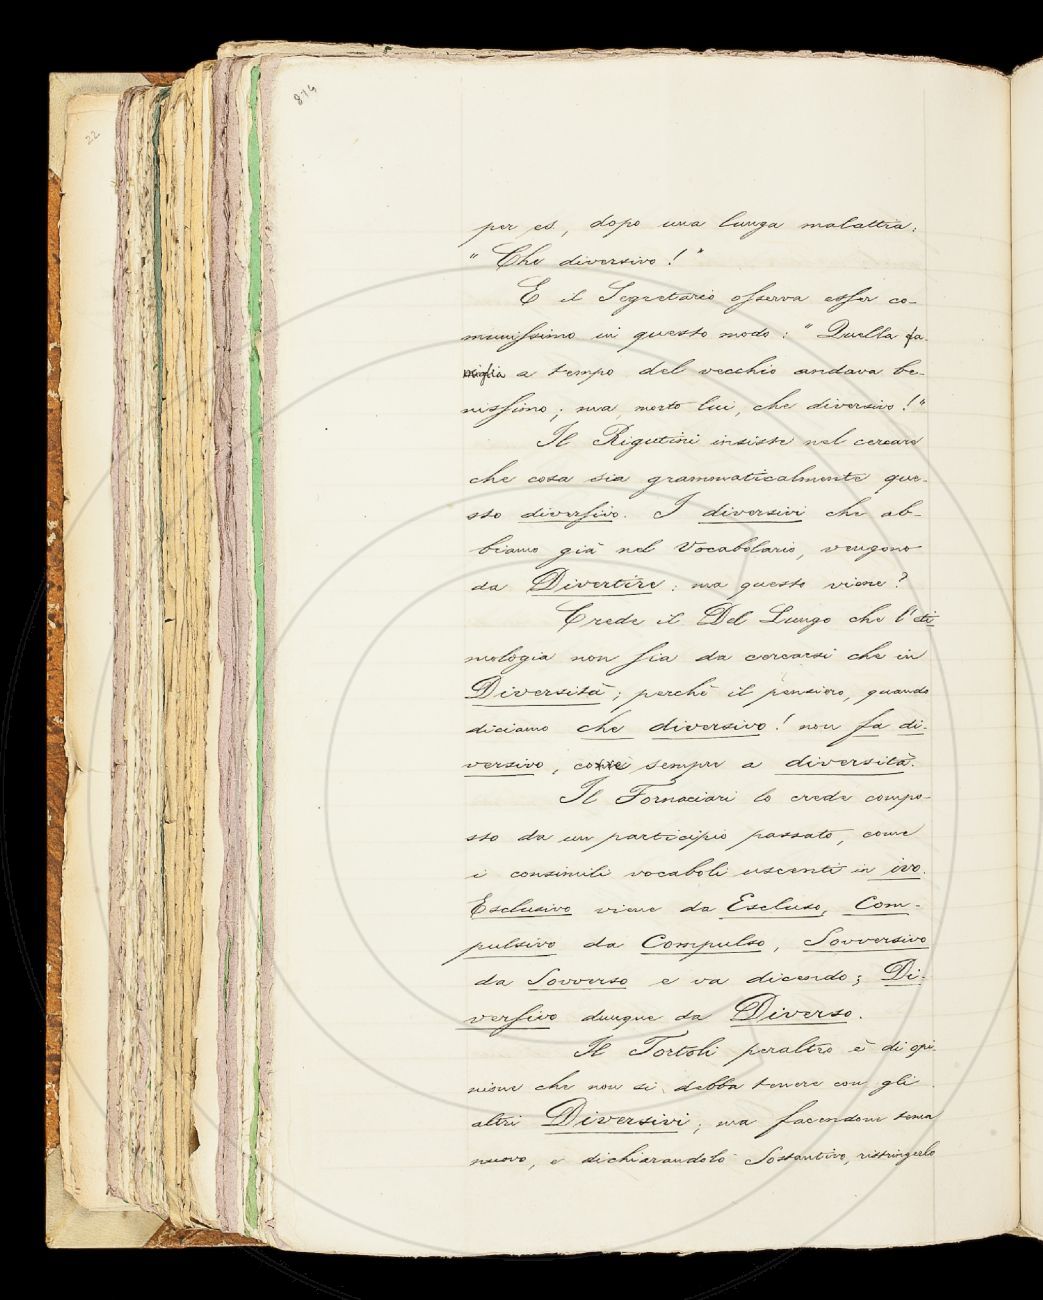 874
22
per es, dopo una lunga malattia:
" Che diversivo! "
E il Segretario osserva esser co-
munissimo in questo modo: " Quella fa-
miglia a tempo del vecchio andava be-
nissimo; ma, morto lui, che diversivo! "
Il Rigutini insiste nel cercare
che cosa sia grammaticalmente que-
sto diversivo. I diversivi che ab-
biamo già nel Vocabolario, vengono
da Divertire: ma questo viene?
Crede il Del Lungo che l'eti-
mologia non sia da cercarsi che in
Diversità; perchè il pensiero, quando
diciamo che diversivo! non fa di-
versivo, corre sempre a diversità.
Il Fornaciari lo crede compo-
sto da un participio passato, come
i consimili vocaboli uscenti in ivo.
Esclusivo viene da Escluso, Com-
pulsivo da Compulso, Sovversivo
da Sovverso e va dicendo; Di-
versivo dunque da Diverso.
Il Tortoli peraltro è di opi-
nione che non si debba tenere con gli
altri Diversivi; ma facendone tema
nuovo, e dichiarandolo Sostantivo, ristringerlo